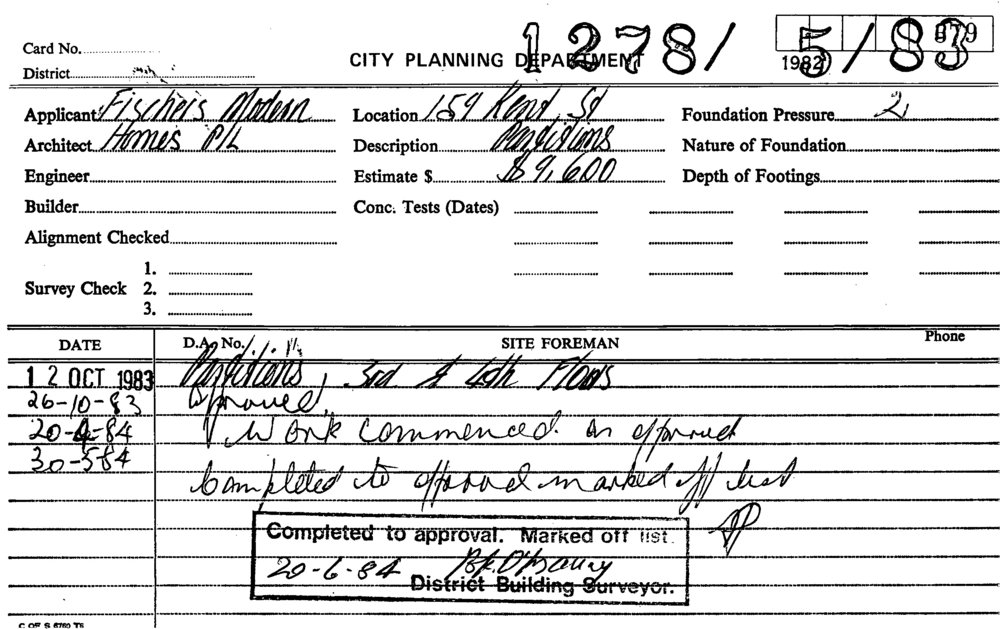 1278/5/83
Card No.
CITY PLANNING DEPARTMENT
1982 879
District
Applicant Fischers Modern
Location 159 Kent St
Foundation Pressure 2
Architect Homes P/L
Description Partitions
Nature of Foundation
Engineer
Estimate $ $9,600
Depth of Footings
Builder
Conc. Tests (Dates)
Alignment Checked
1.
Survey Check 2.
3.
DATE D.A. No. SITE FOREMAN Phone
12 OCT 1983 Partitions, 3rd & 4th Floors
26-10-83 Approved.
20-4-84 Work commenced as approved
30-5-84
Completed to approval marked off list
Completed to approval. Marked off list.
20-6-84
District Building Surveyor.